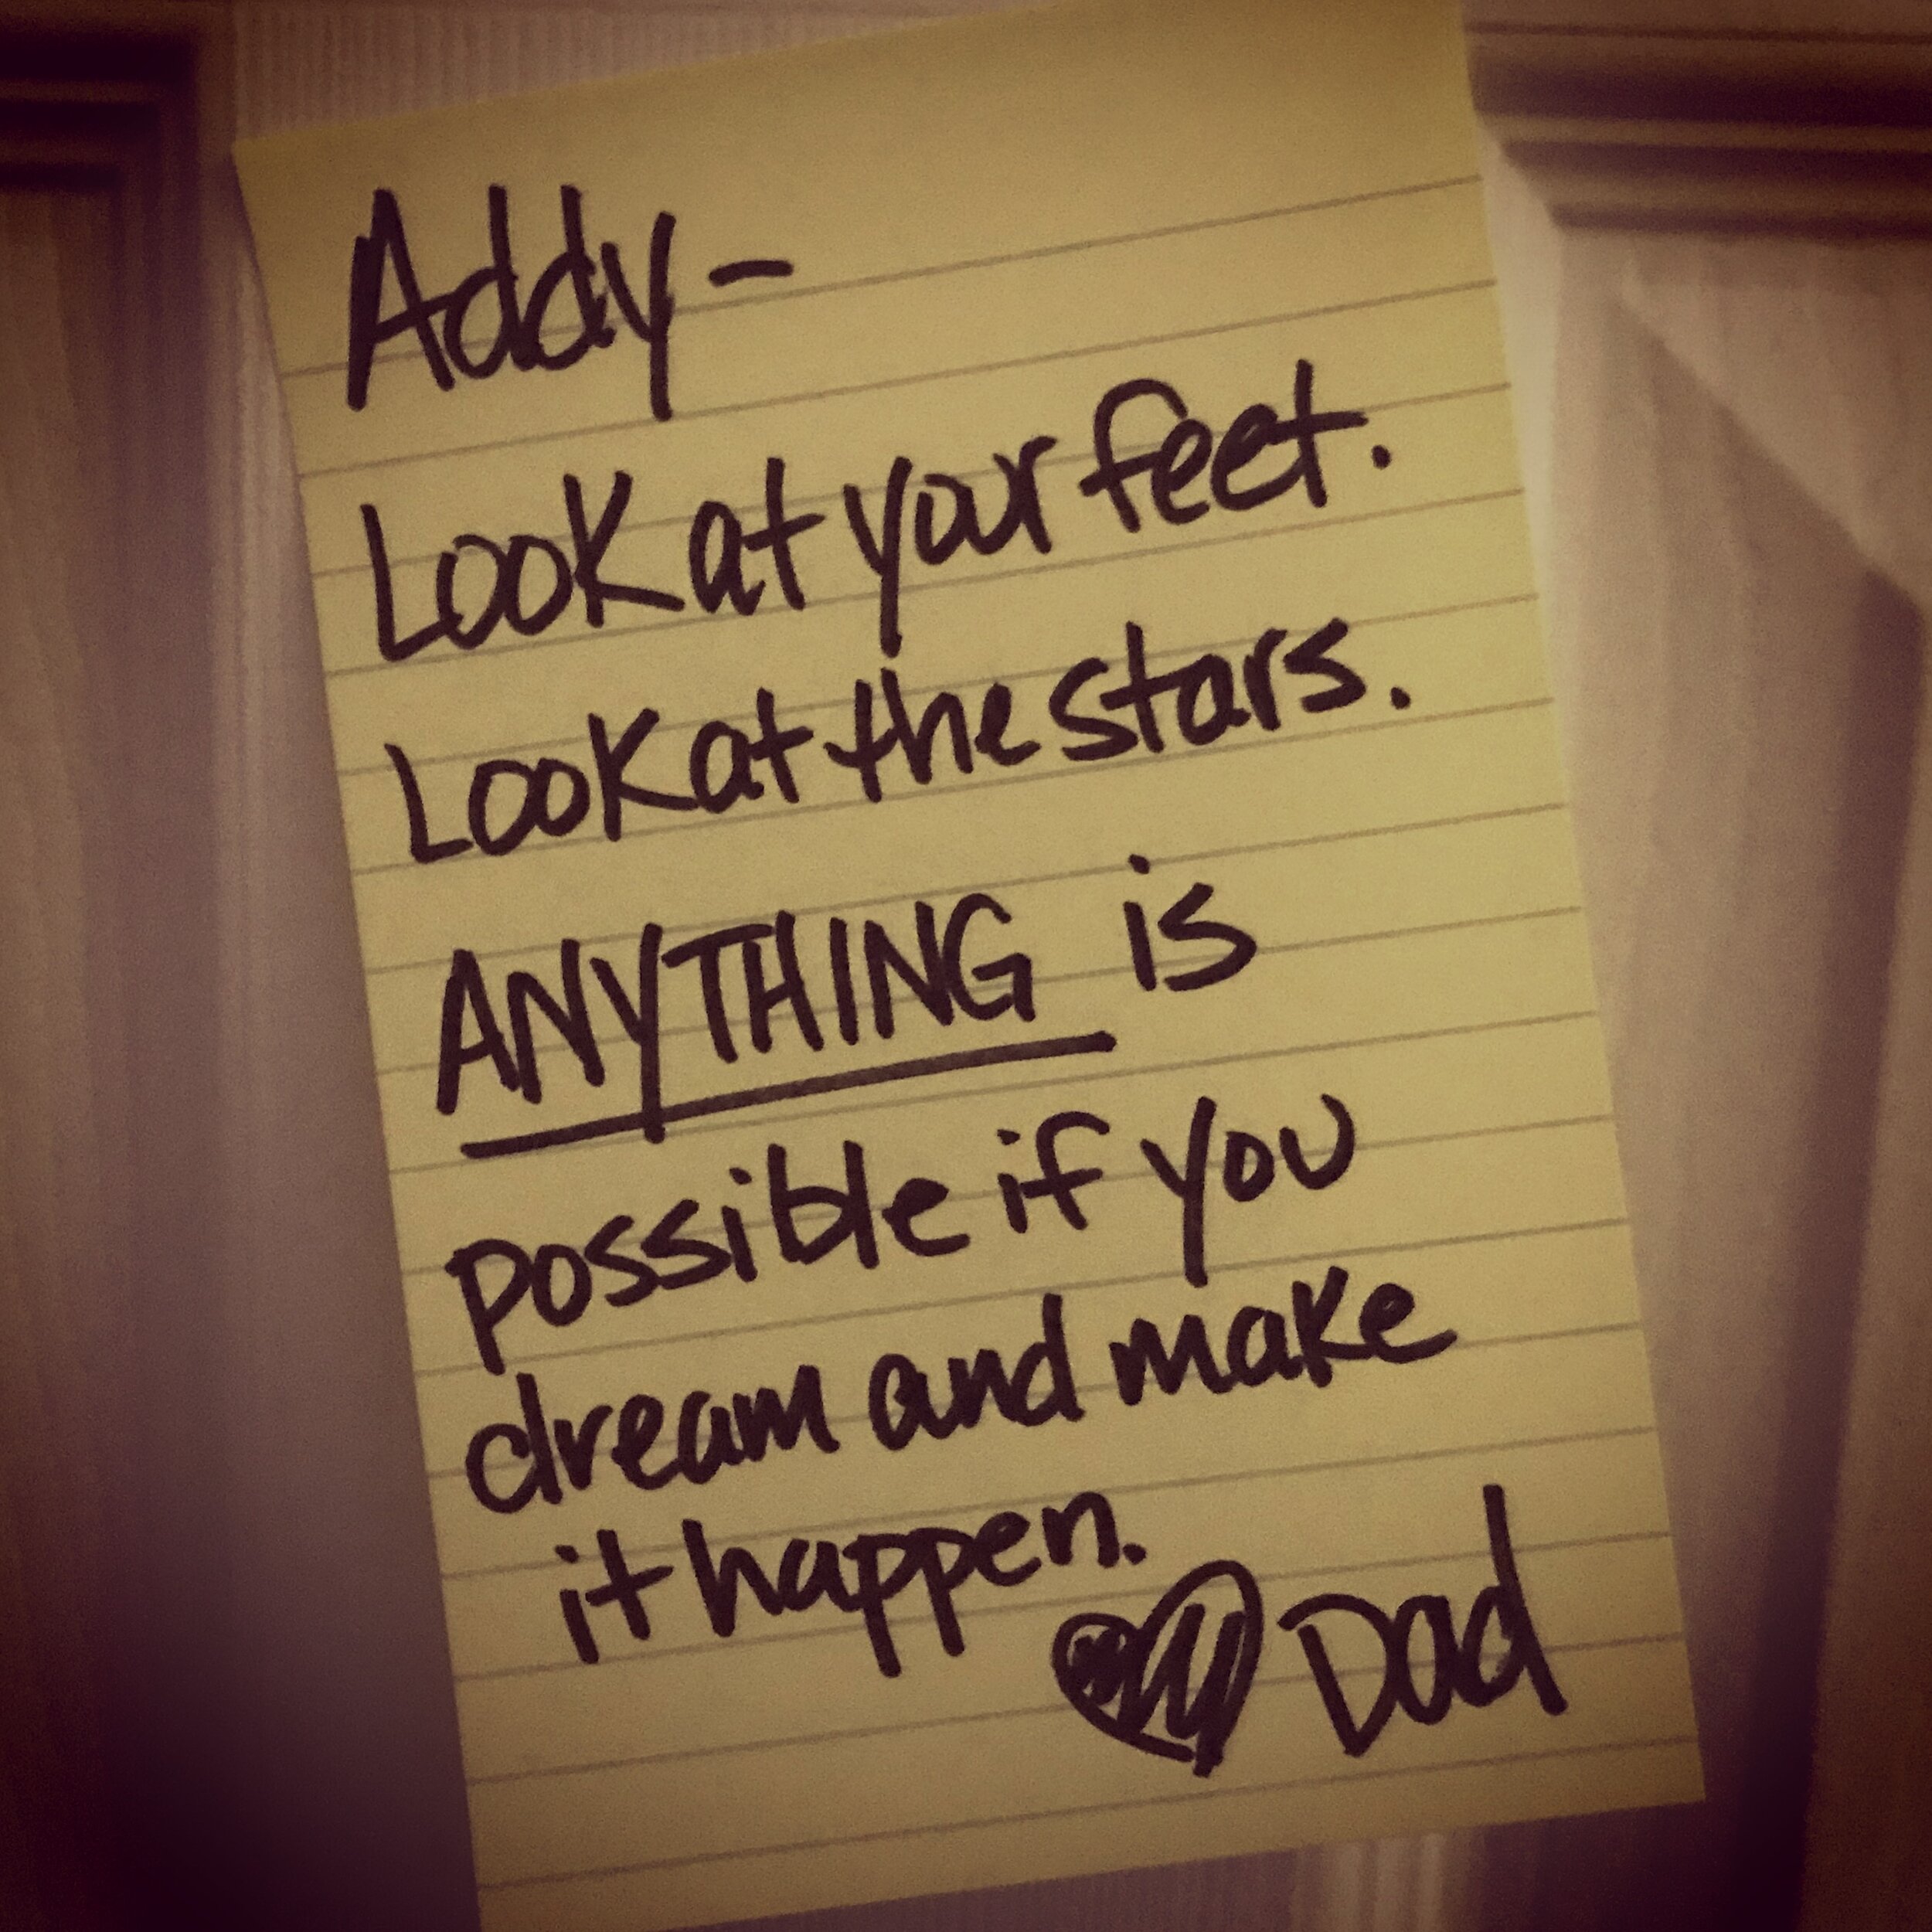 Addy -
Look at your feet.
Look at the stars.
ANYTHING is
possible if you
dream and make
it happen.
Dad